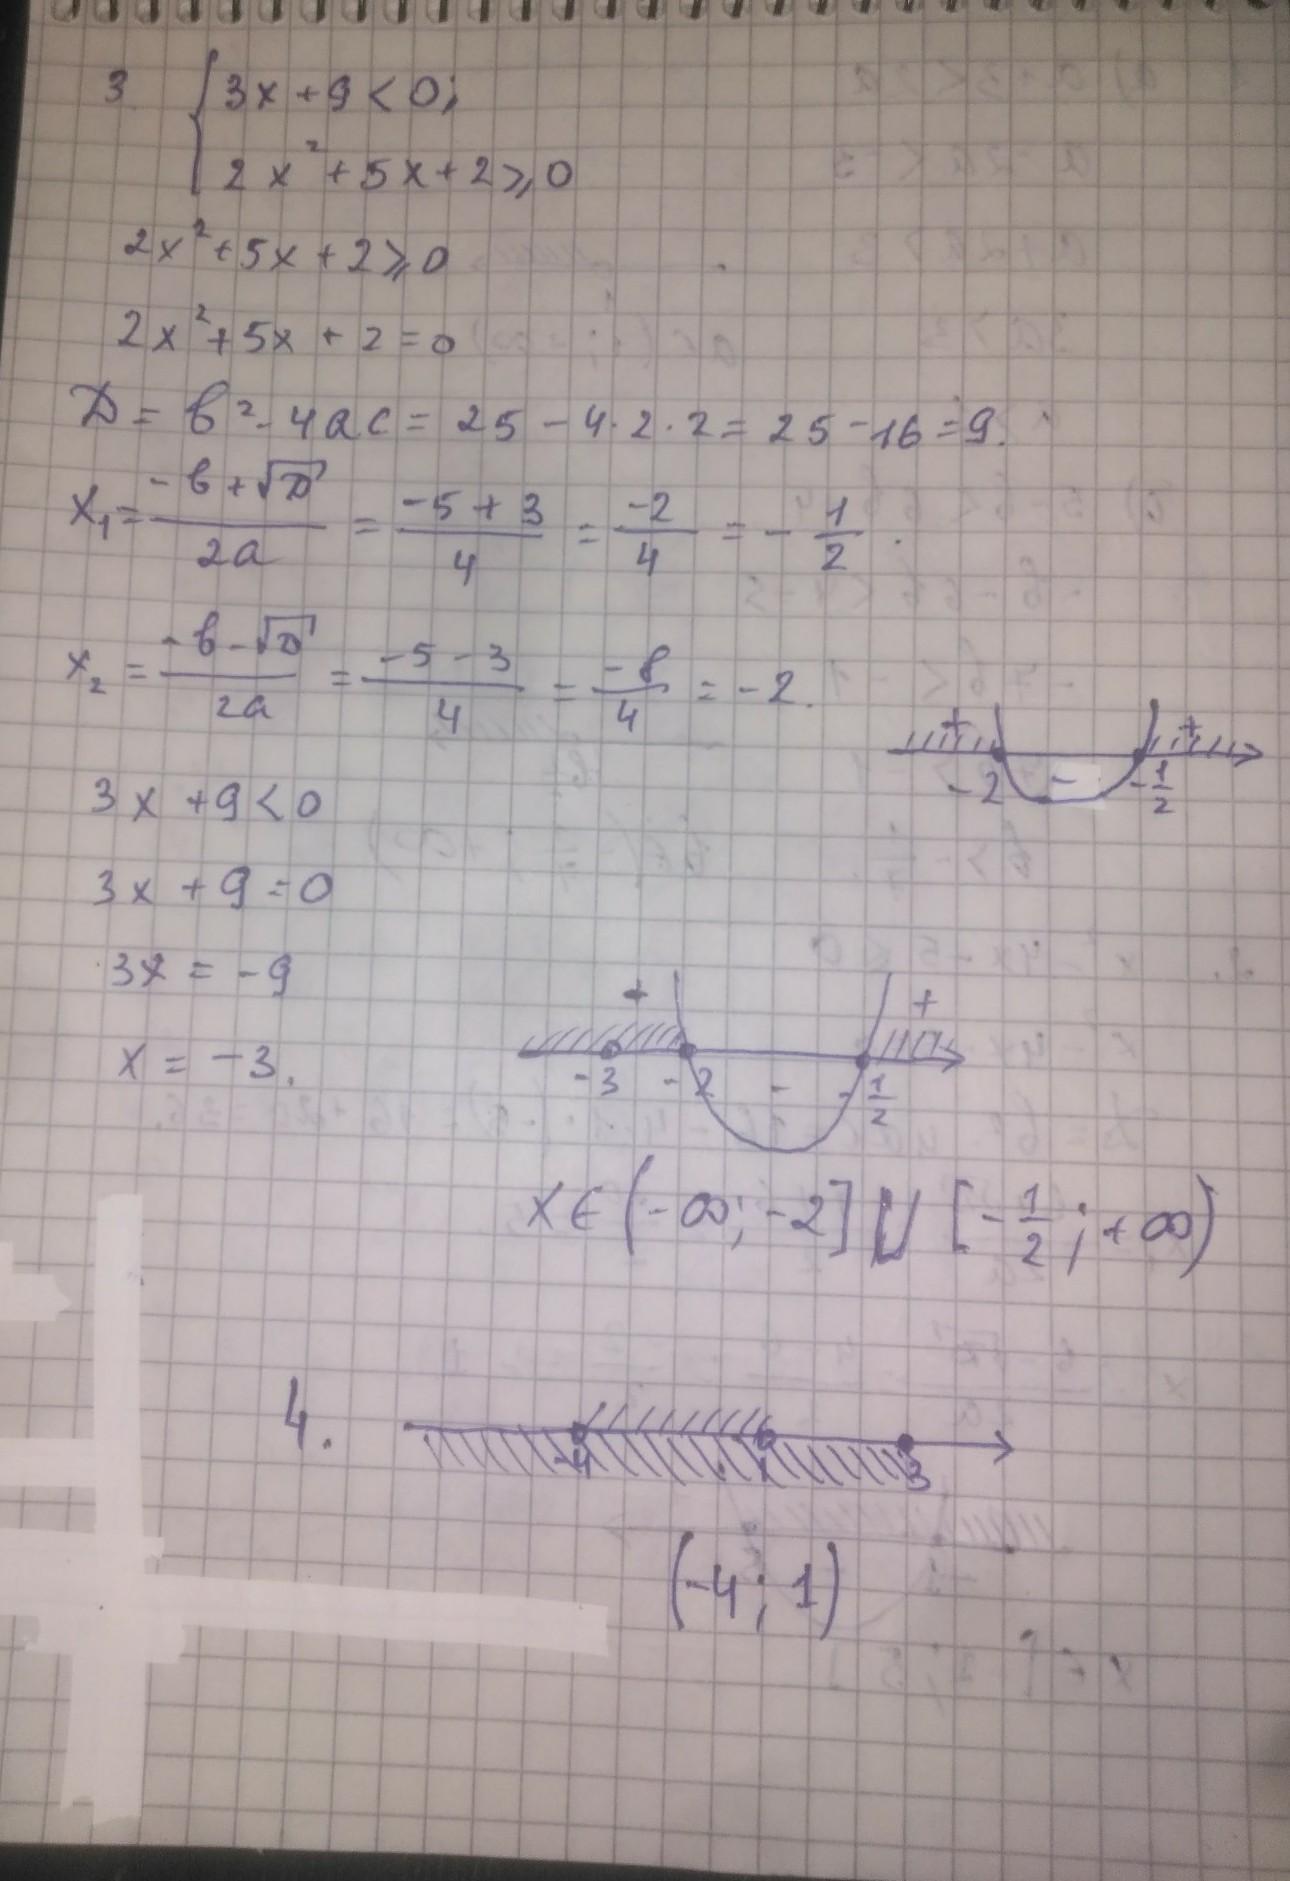 3. { 3x + 9 < 0;
2x² + 5x + 2 ⩾ 0
2x² + 5x + 2 ⩾ 0
2x² + 5x + 2 = 0
D = b² - 4ac = 25 - 4·2·2 = 25 - 16 = 9.
x₁ = (-b + √D)/(2a) = (-5 + 3)/4 = (-2)/4 = - 1/2.
x₂ = (-b - √D)/(2a) = (-5 - 3)/4 = (-8)/4 = -2.
+ +
-2 - -1/2
3x + 9 < 0
3x + 9 = 0
3x = -9
x = -3.
+ +
-3 -2 - -1/2
x ∈ (-∞; -2] ∪ [-1/2; +∞)
4.
-4 1 3
(-4; 1)